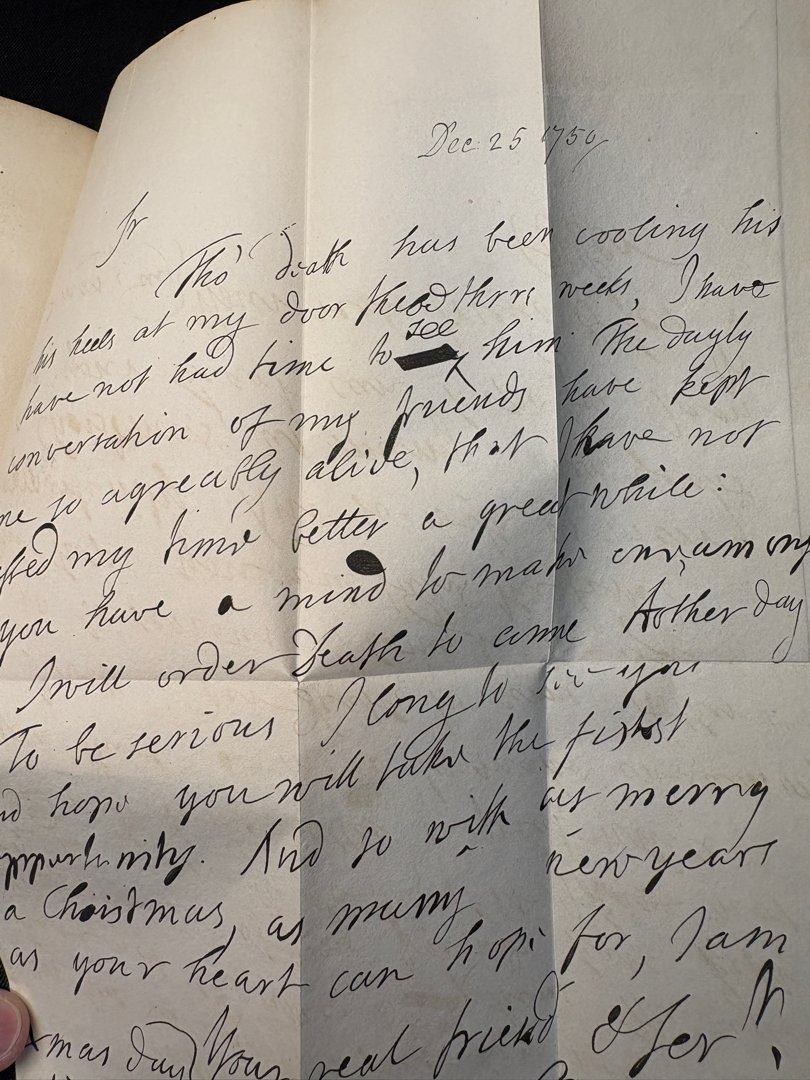 Dec 25 1750
Sr
Tho' death has been cooling his
his heels at my door these three weeks, I have
have not had time to see him The dayly
conversation of my friends have kept
me so agreably alive, that I have not
my time better a great while:
you have a mind to make one, among
I will order Death to come Aother day
To be serious I long to see you
hope you will take the first
opportunity. And so with as merry
a Christmas, as many new years
as your heart can hope for, I am
xmas day) Your real friend & Servt,